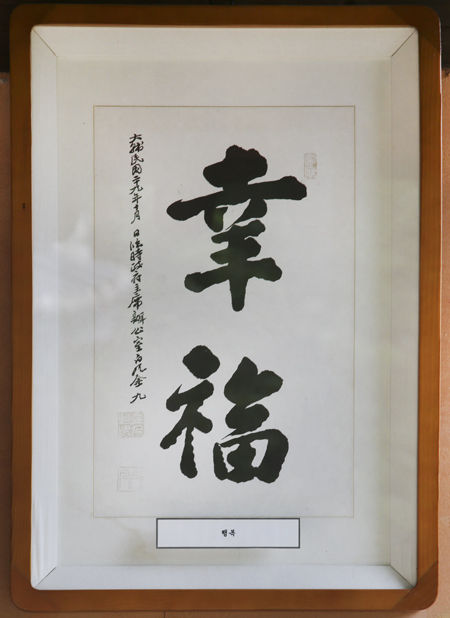 幸福
大韓民國廿九年 月 日臨時政府主席辦公室白凡金 九
행복